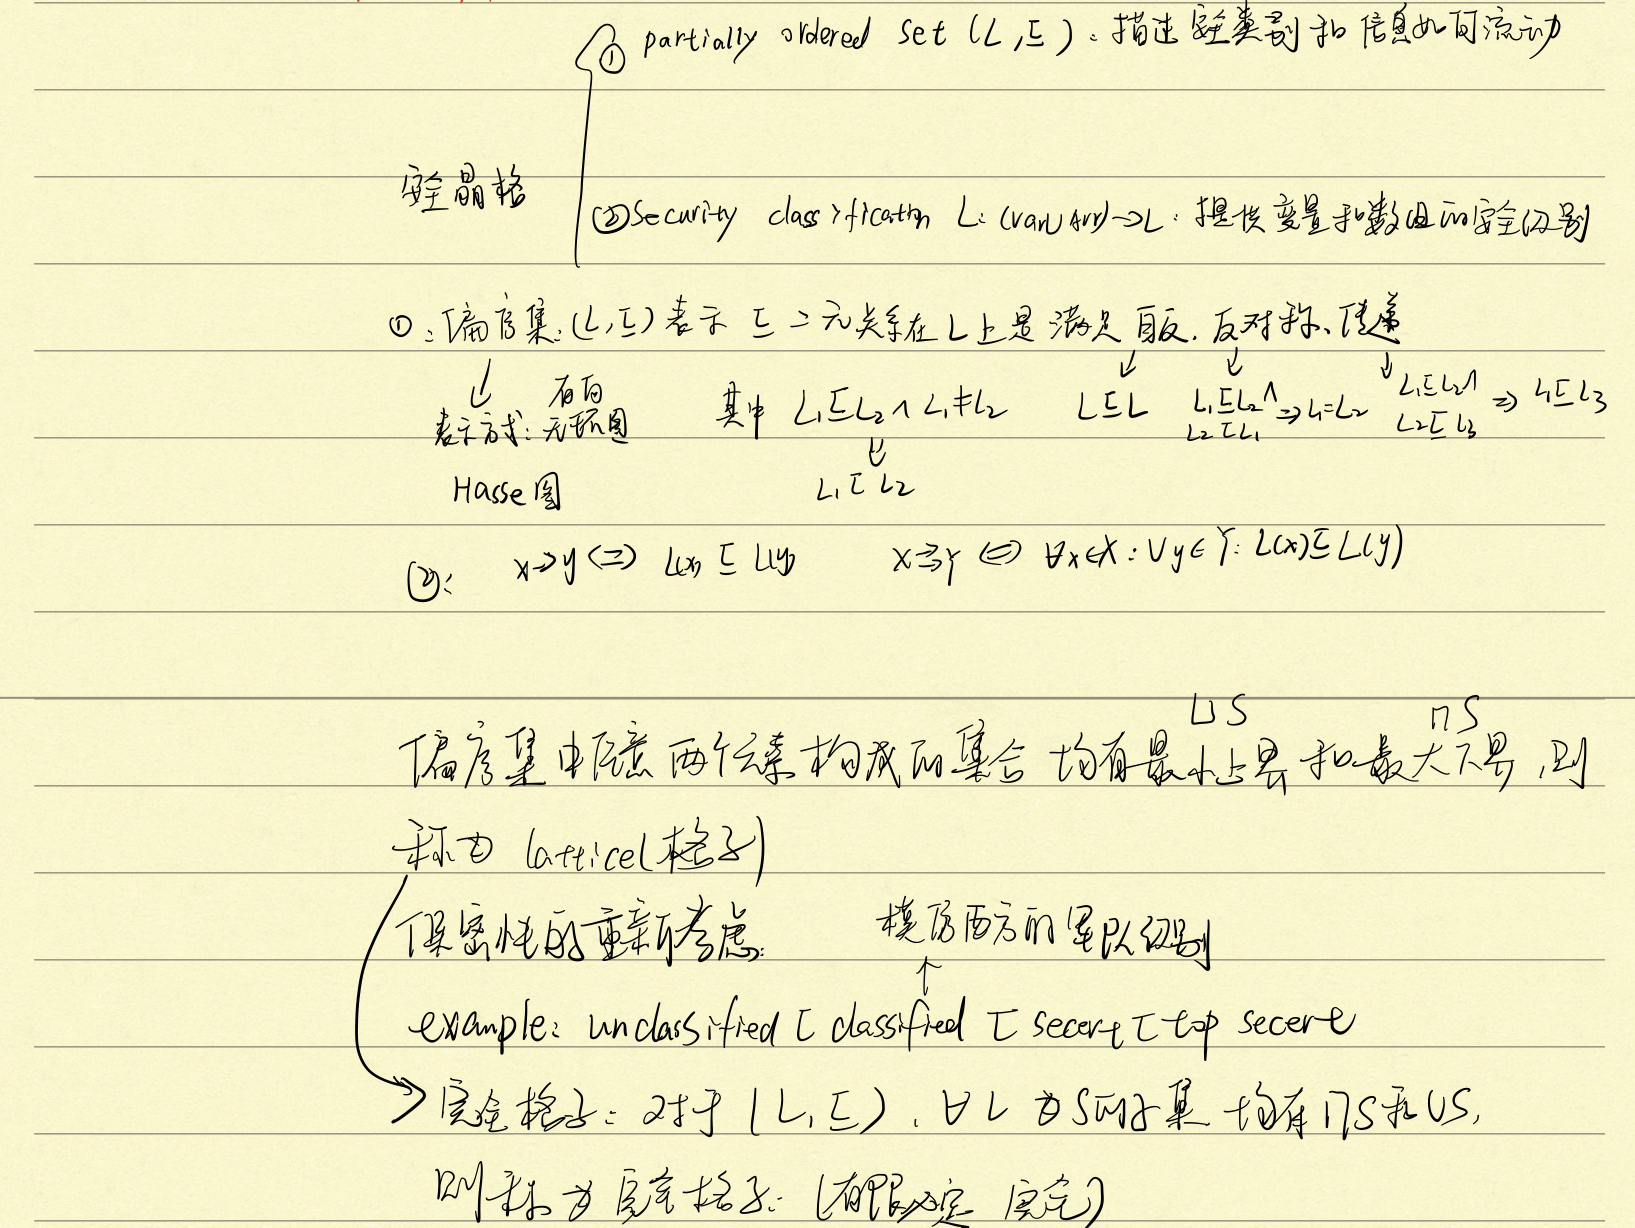 ① partially ordered set (L,⊑): 描述安全类别和信息如何流动
安全晶格
②Security classification L: (Var∪Arr)→L: 提供变量和数组的安全级别
①:偏序集:(L,⊑)表示 ⊑ 二元关系在L上是满足自反.反对称、传递
↓ ↓ ↓ ↓
表示方式: 有向无环图 其中 L₁⊑L₂ ∧ L₁≠L₂ L⊑L L₁⊑L₂∧ L₂⊑L₁ ⇒ L₁=L₂ L₁⊑L₂∧ L₂⊑L₃ ⇒ L₁⊑L₃
↓
Hasse图 L₁⊏L₂
②: x→y ⇔ L(x) ⊑ L(y) X⇉Y ⇔ ∀x∈X: ∀y∈Y: L(x)⊑L(y)
⊔S ⊓S
偏序集中任意两个元素构成的集合 均有最小上界和最大下界,则
称为 lattice(格子)
保密性的重新考虑: 模仿西方的军队级别
↑
example: unclassified ⊏ classified ⊏ secert ⊏ top secert
→完全格子: 对于(L,⊑), ∀L为S的子集 均有⊓S和⊔S,
则称为完全格子. (有限必定 完全)